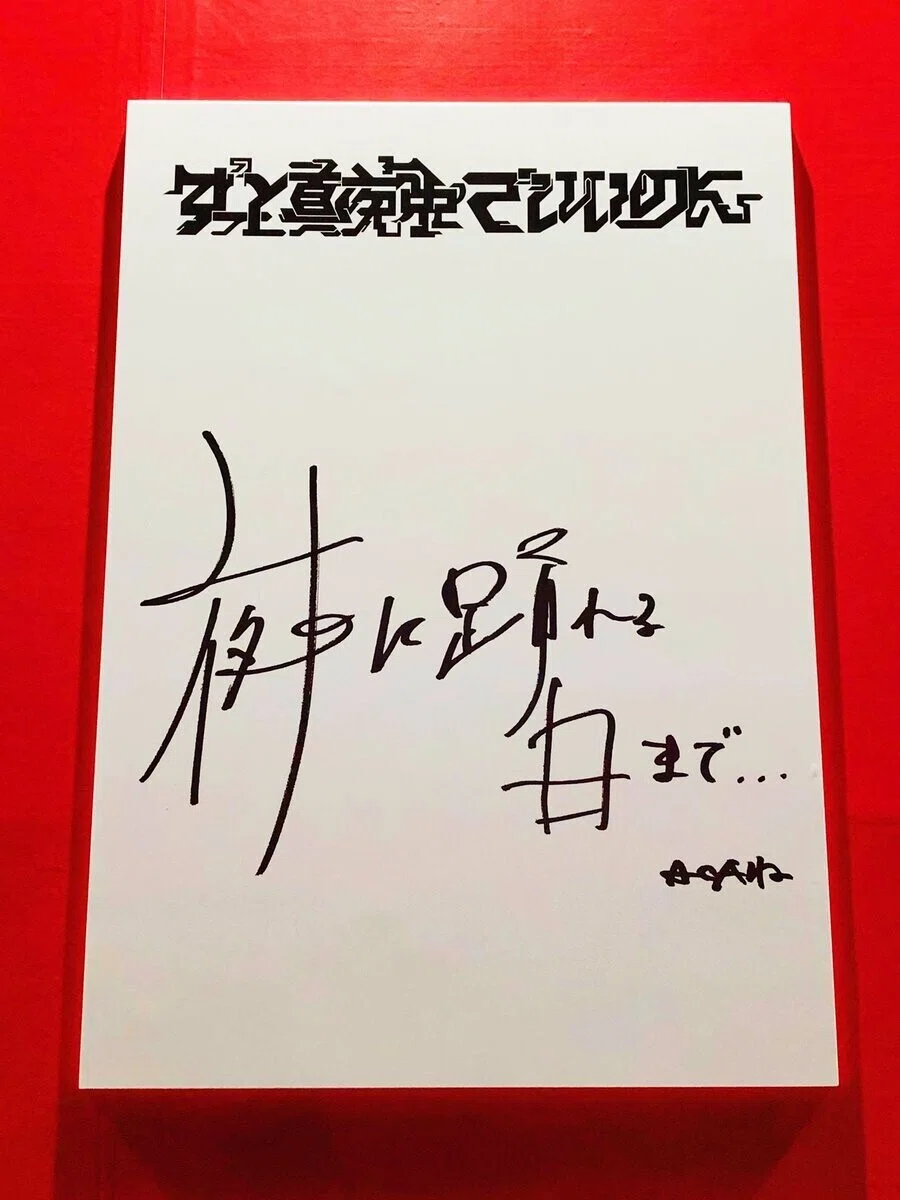 ずっと真夜中でいいのに。
夜中に踊れる
日まで...
ACAね